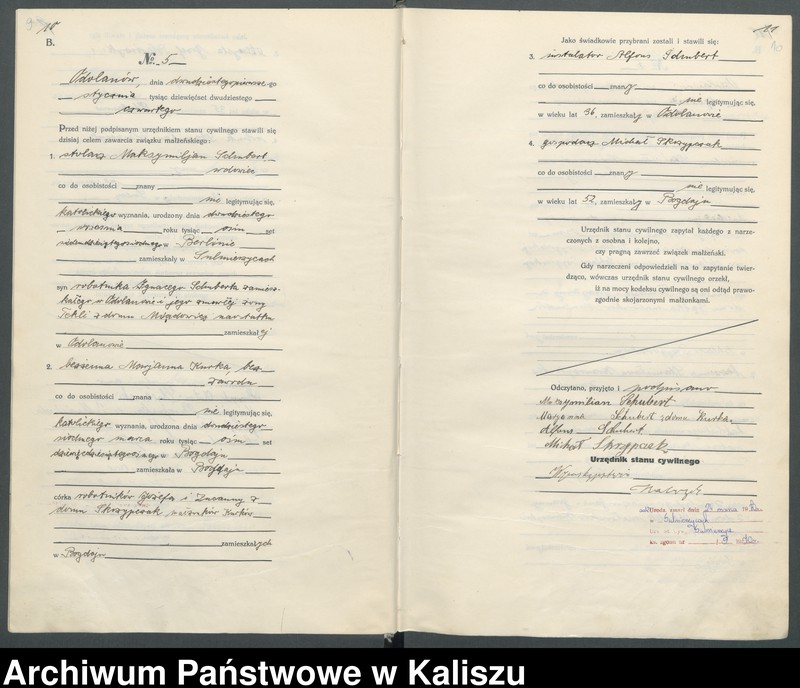 10
B.
№ 5
Odolanów, dnia dwudziestegopierwszego
stycznia tysiąc dziewięćset dwudziestego
czwartego
Przed niżej podpisanym urzędnikiem stanu cywilnego stawili się
dzisiaj celem zawarcia związku małżeńskiego:
1. stolarz Maksymiljan Schubert
wdowiec
co do osobistości znany
nie legitymując się,
katolickiego wyznania, urodzony dnia dwudziestego
września roku tysiąc osim set
w Berlinie
zamieszkały w Sulmierzycach
syn robotnika Ignacego Schuberta zamiesz-
kałego w Odolanowie i jego zmarłej żony
Tekli z domu
zamieszkałej
w Odolanowie
2. bezżenna Marjanna Kurka, bez
zawodu
co do osobistości znana
nie legitymując się,
katolickiego wyznania, urodzona dnia dwudziestego
siódmego marca roku tysiąc osim set
w Bogdaju
zamieszkała w Bogdaju
córka robotników Józefa i Zuzanny z
domu Skrzypczak małżonków Kurków
zamieszkałych
w Bogdaju
11
Jako świadkowie przybrani zostali i stawili się:
3. instalator Alfons Schubert
co do osobistości znany
nie legitymując się,
w wieku lat 36, zamieszkały w Odolanowie
4. gospodarz Michał Skrzypczak
co do osobistości znany
nie legitymując się,
w wieku lat 52, zamieszkały w Bogdaju
Urzędnik stanu cywilnego zapytał każdego z narze-
czonych z osobna i kolejno,
czy pragną zawrzeć związek małżeński.
Gdy narzeczeni odpowiedzieli na to zapytanie twier-
dząco, wówczas urzędnik stanu cywilnego orzekł,
iż na mocy kodeksu cywilnego są oni odtąd prawo-
zgodnie skojarzonymi małżonkami.
Odczytano, przyjęto i podpisano
Maxymilian Schubert
Maryanna Schubert z domu Kurka
Alfons Schubert
Michał Skrzypczak
Urzędnik stanu cywilnego
W zastępstwie
Archiwum Państwowe w Kaliszu